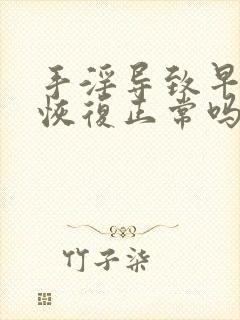 手淫导致早
恢復正常吗
竹子柒